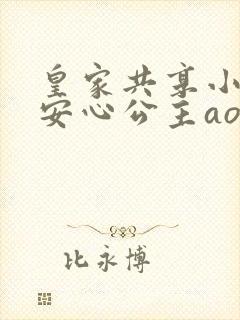 皇家共享小
安心公主ao
比永博